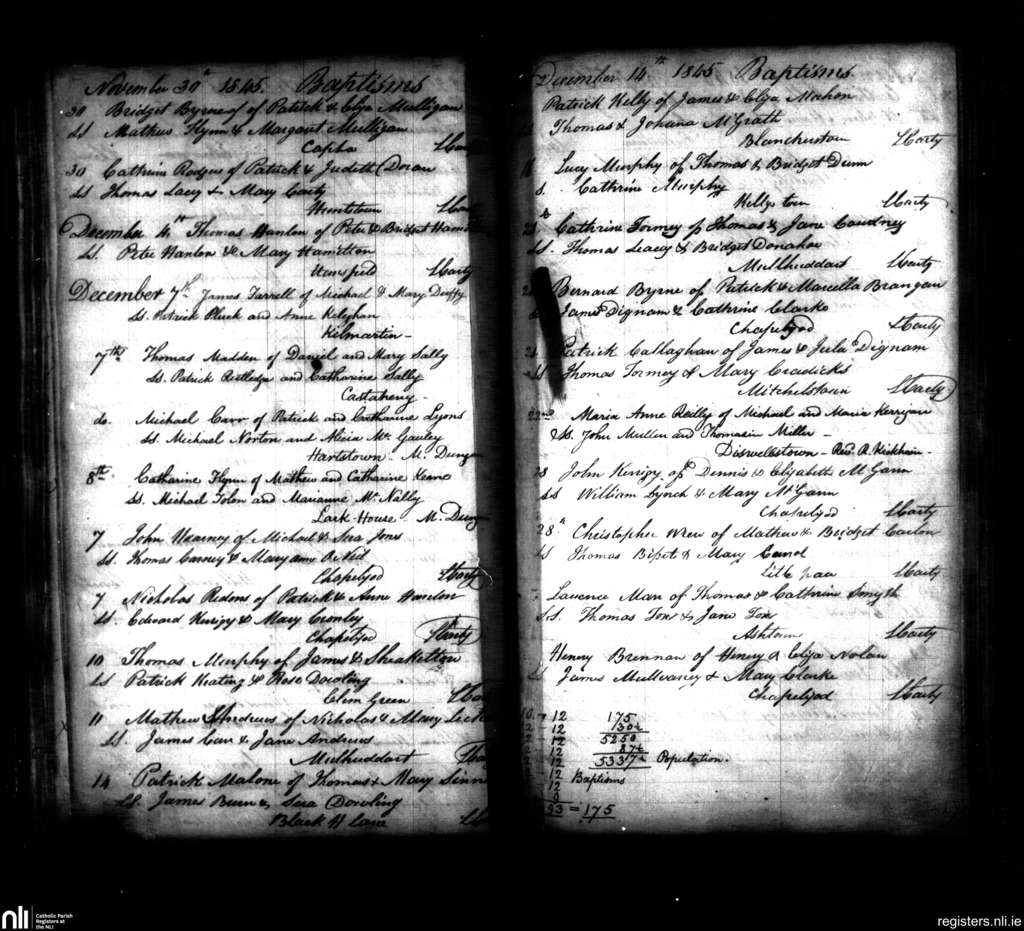 November 30th 1845. Baptisms
30 Bridget Byrne of of Patrick & Eliza Mulligan
Ss Mathew Flynn & Margaret Mulligan
Capha
30 Cathrine Rodgers of Patrick & Judith Doran
Ss Thomas Lacy & Mary Carty
Huntstown
December 4th Thomas Hanlon of Peter & Bridget
Ss. Peter Hanlon & Mary Hamilton
Harty
December 7th James Farrell of Michael & Mary Duffy
Ss. Patrick Pluck and Anne Keleghan
Kilmartin -
7th Thomas Madden of Daniel and Mary Sally
Ss. Patrick Rutledge and Catharine Sally
Castaheny -
do. Michael Carr of Patrick and Catharine Lyons
Ss. Michael Norton and Alicia Mc Gauley
Hartstown - M.
8th Catharine Flynn of Mathew and Catharine Keane
Ss. Michael Tolon and Marianne Mc Nally
Lark-House - M.
7 John Kearney of Michael & Sera Jones
Ss. Thomas Carney & Maryann
Chapelizod Harty
7 Nicholas Redons of Patrick & Anne Hanlon
Ss. Edward Kerigy & Mary Cronley
Chapelizod Harty
10 Thomas Murphy of James &
Ss Patrick Keating & Rose Dowling
Elim Green
11 Mathew Andrews of Nicholas & Mary
Ss. James Carr & Jane Andrews
Mulhuddart
14 Patrick Malone of Thomas & Mary
Ss. James Burn & Sera Dowling
Black H Lane
December 14th 1845 Baptisms
Patrick Kelly of James & Eliza Mahon
Thomas & Johana McGrath
Blanchestown Harty
Lucy Murphy of Thomas & Bridget Dunn
S. Cathrine Murphy
Kellys town Harty
Cathrine Tormey of Thomas & Jane Caudney
Ss. Thomas Leacy & Bridget Donahoe
Mulhuddart Harty
Bernard Byrne of Patrick & Marcella Brangan
James Dignam & Cathrine Clarke
Chapelizod Harty
Patrick Callaghan of James & Julia Dignam
Thomas Tormey & Mary Cradicks
Mitchelstown Harty
22nd Maria Anne Reilly of Michael and Maria Kerrigan
Ss. John Mullen and Thomasin Miller -
Diswellstown - Revd. R. Kickham -
28 John Kerigy of Dennis & Elizabeth McGann
Ss William Lynch & Mary McGann
Chapelizod Harty
28th Christopher Wren of Mathew & Bridget Carlon
Ss Thomas Bisset & Mary
Harty
Laurence Man of Thomas & Cathrine Smyth
Ss. Thomas Fox & Jane Fox
Ashtown Harty
Henry Brennan of Henry & Eliza Nolan
James Mullvaney & Mary Clarke
Chapelizod Harty
12 175
12 30
12 5250
12 87
12 5337 Population.
12 Baptisms
8
93 = 175
nli Catholic Parish Registers at the NLI
registers.nli.ie